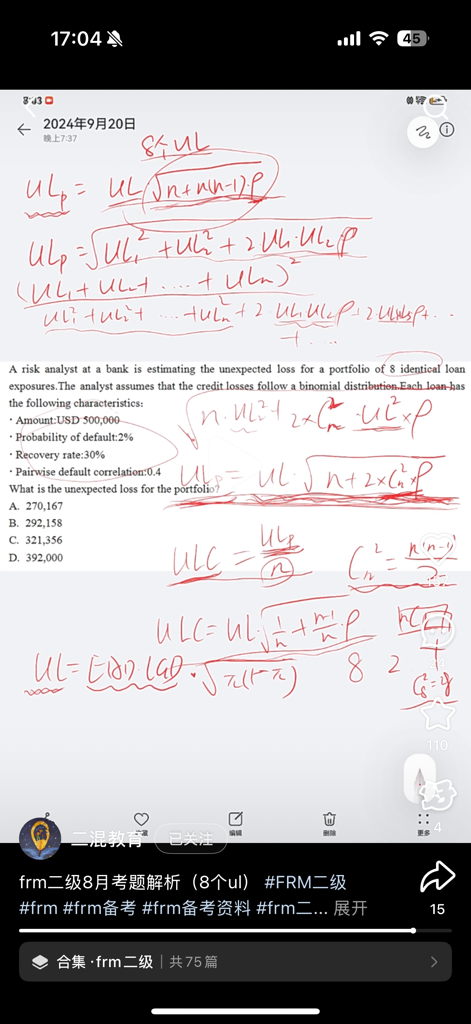 17:04
45
2024年9月20日
晚上7:37
8个UL
ULp = UL √n+n(n-1)ρ
ULp = √UL₁² + UL₂² + 2UL₁·UL₂ρ
(UL₁ + UL₂ + .... + ULn)²
UL₁² + UL₂² + .... + ULn² + 2 UL₁UL₂ρ
A risk analyst at a bank is estimating the unexpected loss for a portfolio of 8 identical loan
exposures.The analyst assumes that the credit losses follow a binomial distribution.Each loan has
the following characteristics:
· Amount:USD 500,000
· Probability of default:2%
· Recovery rate:30%
· Pairwise default correlation:0.4
What is the unexpected loss for the portfolio?
A. 270,167
B. 292,158
C. 321,356
D. 392,000
√n·UL²+2×Cn²·UL²×ρ
ULp = UL·√n+2×Cn²×ρ
ULC = ULp/n
Cn² = n(n-1)/2
ULC = UL√1/n + n-1/n·ρ
UL = EAD·LGD·√π(1-π)
8 2
110
编辑
删除
更多
4
二混教育
已关注
frm二级8月考题解析（8个ul） #FRM二级
#frm #frm备考 #frm备考资料 #frm二... 展开
15
合集·frm二级｜共75篇